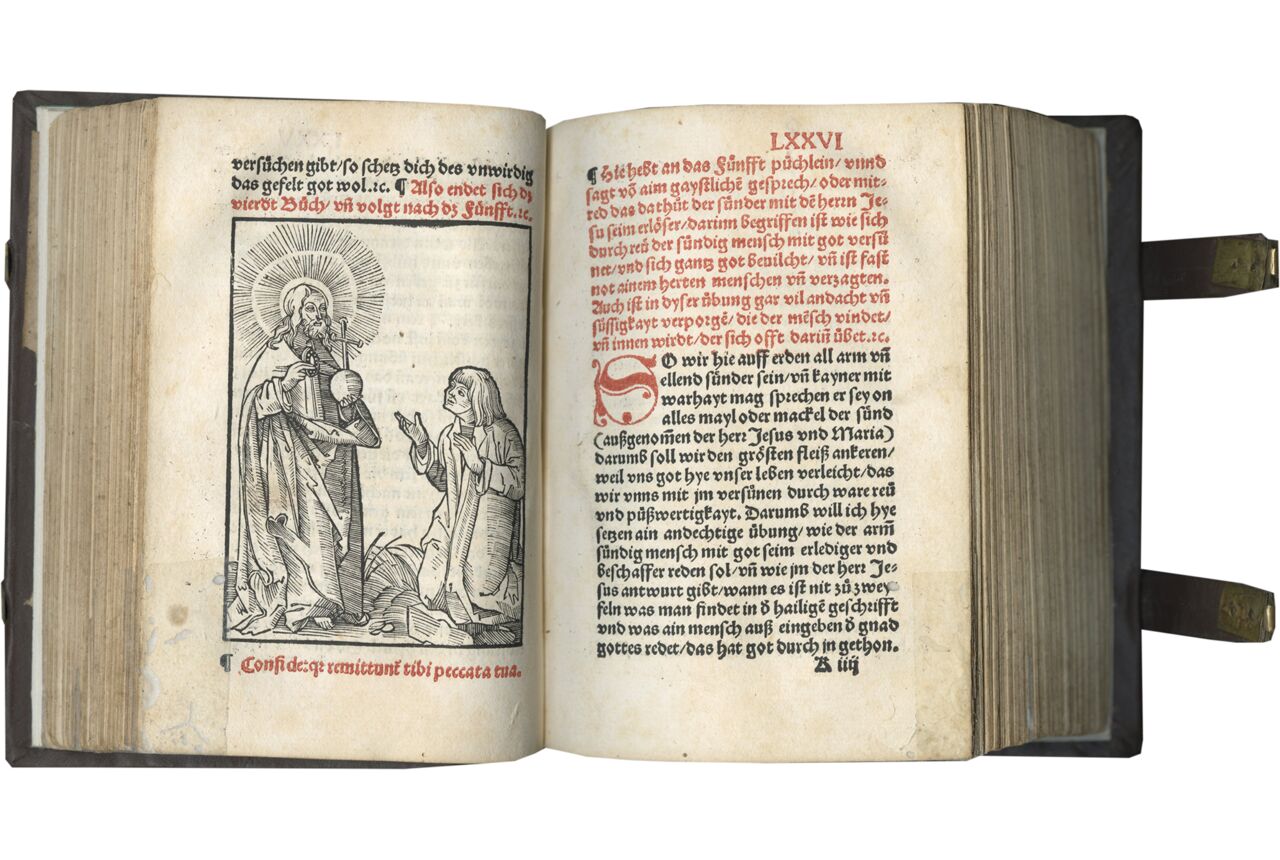 versůchen gibt/so schetz dich des vnwirdig
das gefelt got wol.ꝛc. ¶ Also endet sich dz
vierdt Bůch/ vn̄ volgt nach dz Fünfft.ꝛc.
¶ Confide:qꝛ remittunt᷑ tibi peccata tua.
LXXVI
¶ Hie hebt an das Fünfft půchlein/ vnnd
sagt vō aim gaystlichē gesprech/ oder mit⸗
red das da thůt der sünder mit dē herrn Je⸗
su seim erlöser/darinn begriffen ist wie sich
durch reü der sündig mensch mit got versü
net/vnd sich gantz got beuilcht/ vn̄ ist fast
not ainem herten menschen vn̄ verzagten.
Auch ist in dyser übung gar vil andacht vn̄
süssigkayt verporgē/ die der mēsch vindet/
vn̄ innen wirdt/der sich offt darin̄ übet.ꝛc.
SO wir hie auff erden all arm vn̄
ellend sünder sein/vn̄ kayner mit
warhayt mag sprechen er sey on
alles mayl oder mackel der sünd
(außgenom̄en der herr Jesus vnd Maria)
darumb soll wir den grösten fleiß ankeren/
weil vns got hye vnser leben verleicht/das
wir vnns mit jm versünen durch ware reü
vnd půßwertigkayt. Darumb will ich hye
setzen ain andechtige übung/ wie der arm̄
sündig mensch mit got seim erlediger vnd
beschaffer reden sol/ vn̄ wie jm der herr Je⸗
sus antwurt gibt/wann es ist nit zů zwey
feln was man findet in ð hailigē geschrifft
vnd was ain mensch auß eingeben ð gnad
gottes redet/das hat got durch jn gethon.
K iiij